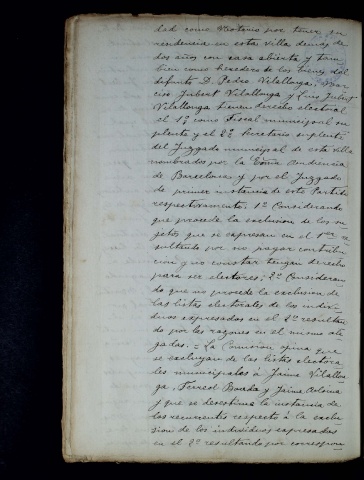 dad como Notario por tener su
residencia en esta villa demas de
dos años con casa abierta y tam
bien como heredero de los bienes del
difunto D. Pedro Vilallonga. Nar
ciso Jubert Vilallonga y Luis Jubert
Vilallonga tienen derecho electoral
el 1º como Fiscal municipal su
plente y el 2º Secretario suplente
del Juzgado municipal de esta villa
nombrados por la Exma Audiencia
de Barcelona y por el Juzgado
de primer instancia de este Partido
respectivamente. 1º Considerando
que procede la exclusion de los su
jetos que se expresan en el 1er re
sultando por no pagar contribu
cion ni constar tengan derecho
para ser electores; 2º Consideran
do que no procede la exclusion de
las listas electorales de los indivi
duos expresados en el 2º resultan
do por las razones en el mismo ale
gadas. = La Comision opina que
se excluyan de las listas electora
les municipales á Jaime Vilallon
ga, y Jaime
y que se desestime la instancia de
los recurrentes respecto á la exclu
sion de los individuos expresados
en el 2º resultando por correspon